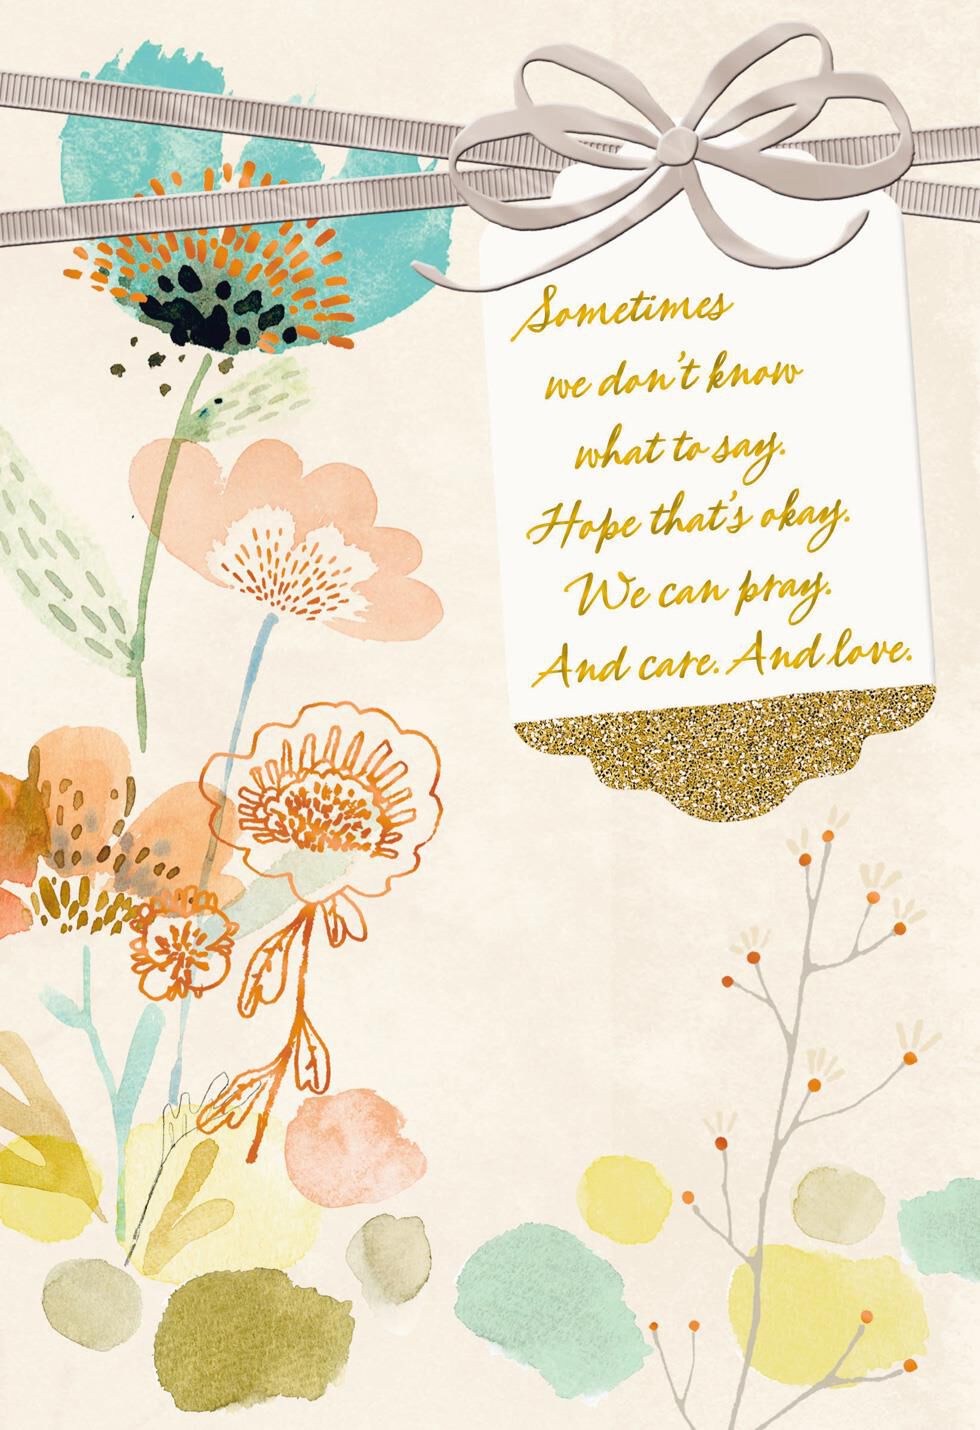 Sometimes
we don't know
what to say.
Hope that's okay.
We can pray.
And care. And love.